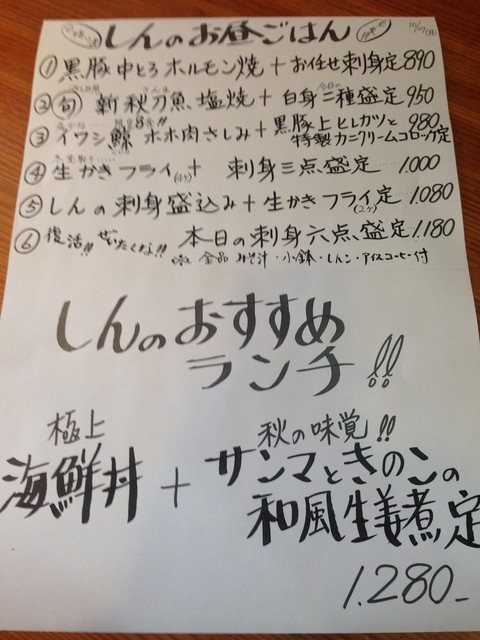 しんのお昼ごはん
① 黒豚中とろホルモン焼 + お任せ刺身定 890
② 旬 新秋刀魚、塩焼 + 白身二種盛定 950
③ イワシ鯨 ホホ肉さしみ + 黒豚上ヒレカツと 980
特製カニクリームコロッケ定
④ 生かきフライ + 刺身三点、盛定 1.000
⑤ しんの刺身盛込み + 生かきフライ定 1.080
⑥ 復活!! ぜいたくな!! 本日の刺身六点、盛定 1.180
全品 みそ汁・小鉢・しんこ・アイスコーヒー付
しんのおすすめ
ランチ!!
極上 秋の味覚!!
海鮮丼 + サンマときのこの
和風生姜煮定
1.280-